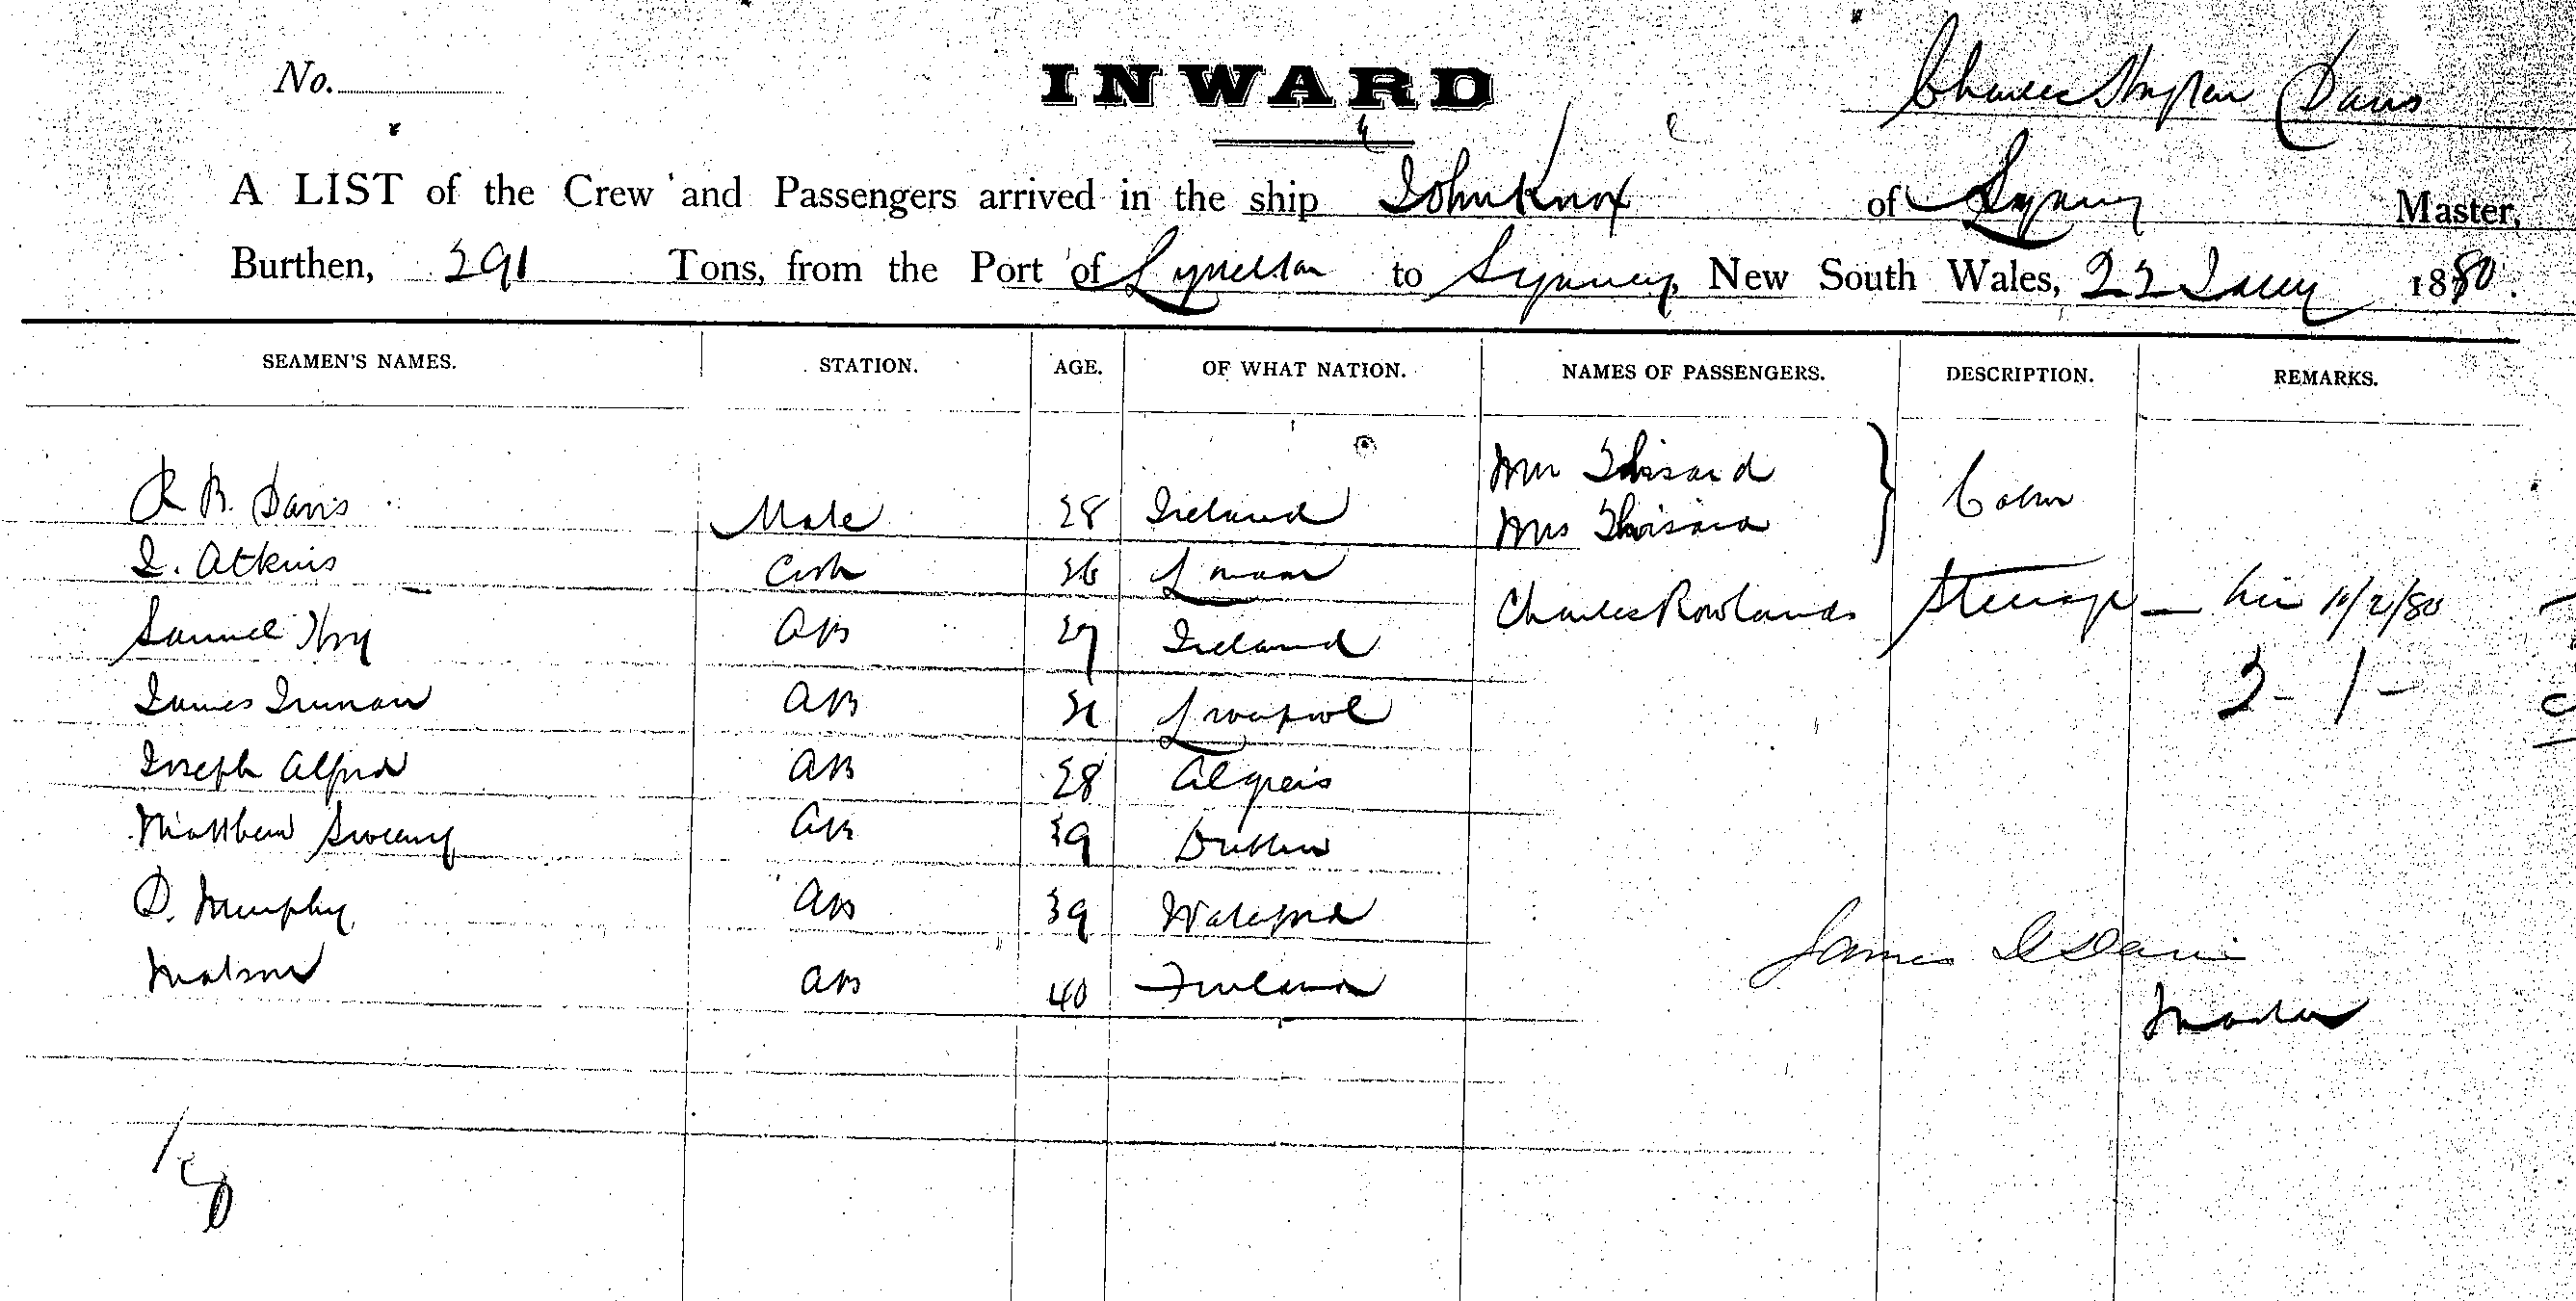 No.
INWARD
Charles Davis
A LIST of the Crew and Passengers arrived in the ship John Knox of Sydney Master,
Burthen, 291 Tons, from the Port of Lyttelton to Sydney, New South Wales, 22 Jany 1880.
SEAMEN'S NAMES. STATION. AGE. OF WHAT NATION. NAMES OF PASSENGERS. DESCRIPTION. REMARKS.
R B. Davis Mate 28 Ireland
Mr
Mrs
Cabin
J. Atkins Cook 26
Charles Rowlands Steerage 10/2/80
Samuel 27 Ireland
2 - 1 -
James AB Liverpool
Joseph Alfred AB 28 Algiers
Matthew Sweeny AB 39 Dublin
D. Murphy AB 39 Waterford
James Davis
Matson AB 40 Finland
Master